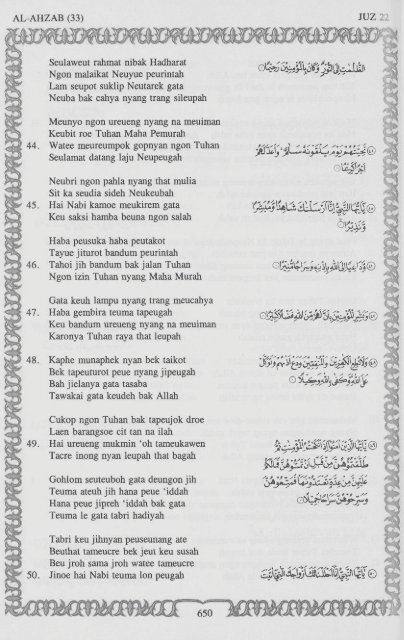 AL-AHZAB (33)
JUZ 22
Seulaweut rahmat nibak Hadharat
Ngon malaikat Neuyue peurintah
Lam seupot suklip Neutarek gata
Neuba bak cahya nyang trang sileupah
الظُّلُمٰتِ إِلَى النُّورِ وَكَانَ بِالْمُؤْمِنِينَ رَحِيمًا
Meunyo ngon ureueng nyang na meuiman
Keubit roe Tuhan Maha Pemurah
44. Watee meureumpok gopnyan ngon Tuhan
Seulamat datang laju Neupeugah
تَحِيَّتُهُمْ يَوْمَ يَلْقَوْنَهُ سَلٰمٌ وَأَعَدَّ لَهُمْ
أَجْرًا كَرِيمًا
Neubri ngon pahla nyang that mulia
Sit ka seudia sideh Neukeubah
45. Hai Nabi kamoe meukirem gata
Keu saksi hamba beuna ngon salah
يٰٓأَيُّهَا النَّبِيُّ إِنَّآ أَرْسَلْنٰكَ شَاهِدًا وَمُبَشِّرًا
وَنَذِيرًا
Haba peusuka haba peutakot
Tayue jiturot bandum peurintah
46. Tahoi jih bandum bak jalan Tuhan
Ngon izin Tuhan nyang Maha Murah
وَدَاعِيًا إِلَى اللّٰهِ بِإِذْنِهِ وَسِرَاجًا مُّنِيرًا
Gata keuh lampu nyang trang meucahya
47. Haba gembira teuma tapeugah
Keu bandum ureueng nyang na meuiman
Karonya Tuhan raya that leupah
وَبَشِّرِ الْمُؤْمِنِينَ بِأَنَّ لَهُمْ مِّنَ اللّٰهِ فَضْلًا كَبِيرًا
48. Kaphe munaphek nyan bek taikot
Bek tapeuturot peue nyang jipeugah
Bah jielanya gata tasaba
Tawakai gata keudeh bak Allah
وَلَا تُطِعِ الْكٰفِرِينَ وَالْمُنٰفِقِينَ وَدَعْ أَذٰىهُمْ وَتَوَكَّلْ
عَلَى اللّٰهِ وَكَفٰى بِاللّٰهِ وَكِيلًا
Cukop ngon Tuhan bak tapeujok droe
Laen barangsoe cit tan na ilah
49. Hai ureueng mukmin 'oh tameukawen
Tacre inong nyan leupah that bagah
يٰٓأَيُّهَا الَّذِينَ اٰمَنُوٓا إِذَا نَكَحْتُمُ الْمُؤْمِنٰتِ ثُمَّ
طَلَّقْتُمُوهُنَّ مِنْ قَبْلِ أَنْ تَمَسُّوهُنَّ فَمَا لَكُمْ
Gohlom seuteuboh gata deungon jih
Teuma ateuh jih hana peue 'iddah
Hana peue jipreh 'iddah bak gata
Teuma le gata tabri hadiyah
عَلَيْهِنَّ مِنْ عِدَّةٍ تَعْتَدُّونَهَا فَمَتِّعُوهُنَّ
وَسَرِّحُوهُنَّ سَرَاحًا جَمِيلًا
Tabri keu jihnyan peuseunang ate
Beuthat tameucre bek jeut keu susah
Beu jroh sama jroh watee tameucre
50. Jinoe hai Nabi teuma lon peugah
يٰٓأَيُّهَا النَّبِيُّ إِنَّآ أَحْلَلْنَا لَكَ أَزْوَاجَكَ الّٰتِيٓ اٰتَيْتَ
650